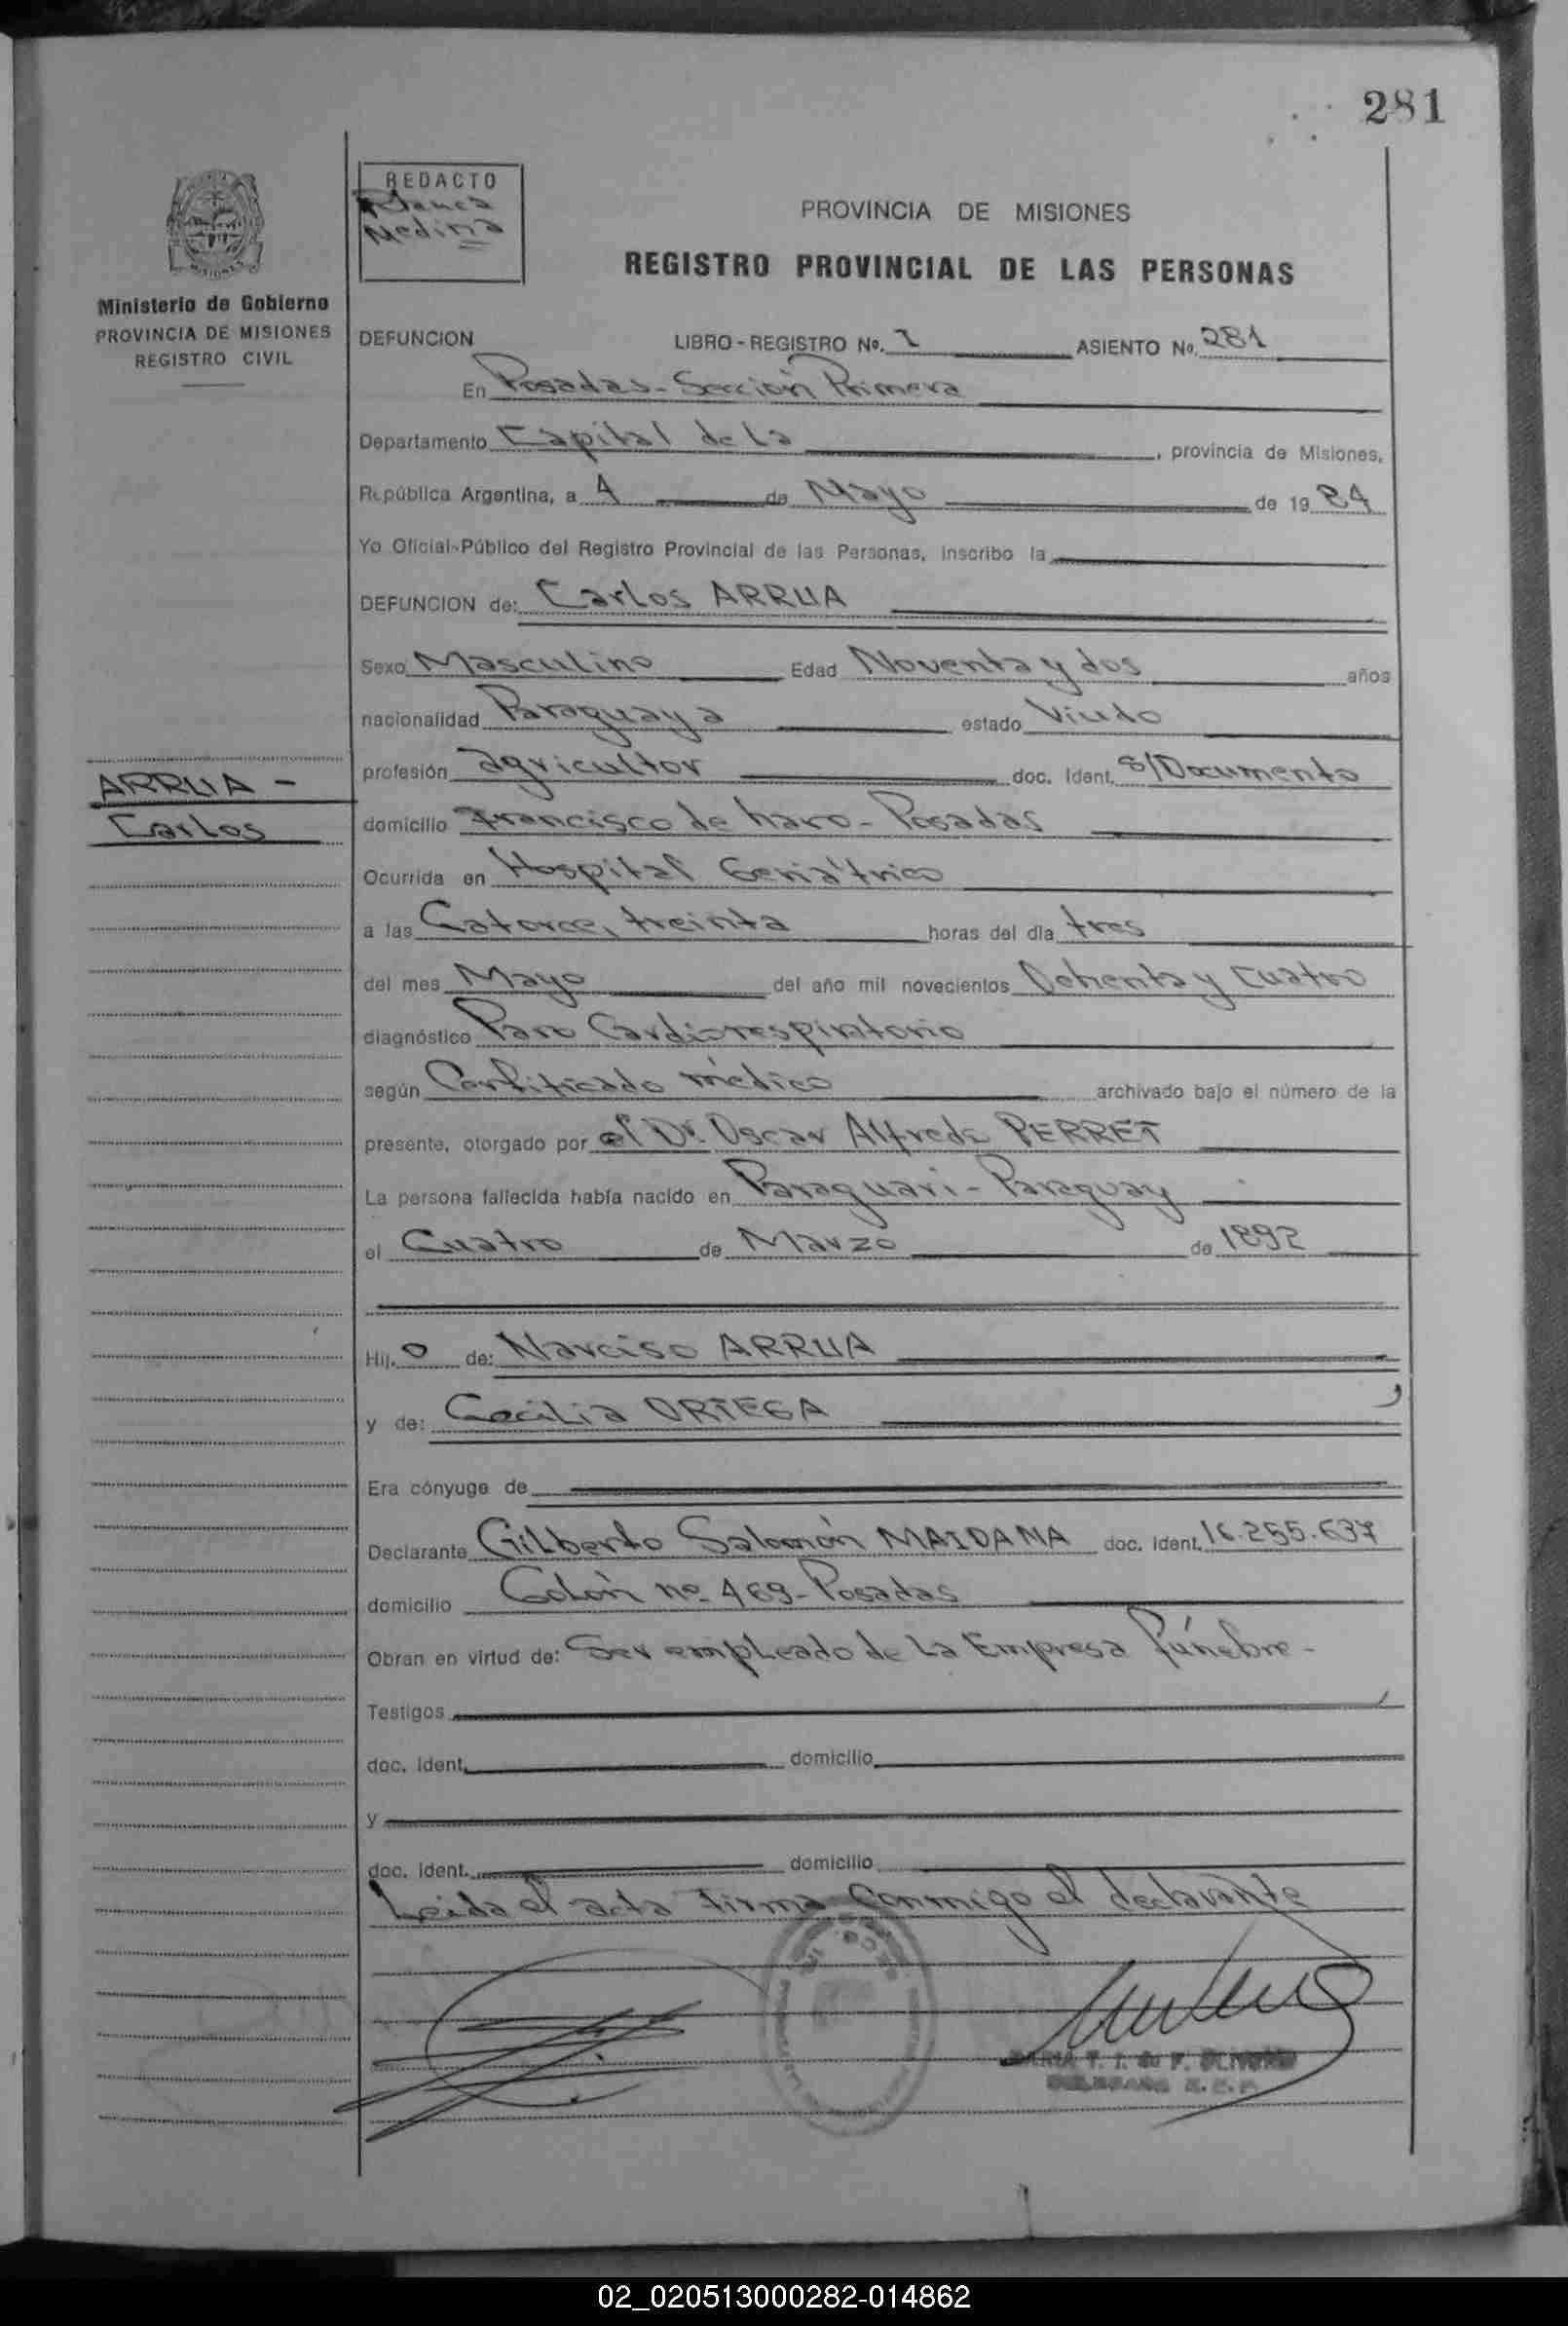 281
REDACTO
Blanca
Medina
MISIONES
Ministerio de Gobierno
PROVINCIA DE MISIONES
REGISTRO CIVIL
PROVINCIA DE MISIONES
REGISTRO PROVINCIAL DE LAS PERSONAS
DEFUNCION LIBRO-REGISTRO No. 1 ASIENTO No. 281
En Posadas - Sección Primera
Departamento Capital de la , provincia de Misiones,
República Argentina, a 4 de Mayo de 1984
Yo Oficial-Público del Registro Provincial de las Personas, inscribo la
DEFUNCION de: Carlos ARRUA
Sexo Masculino Edad Noventa y dos años
nacionalidad Paraguaya estado Viudo
profesión agricultor doc. Ident. s/Documento
ARRUA -
Carlos
domicilio Francisco de haro - Posadas
Ocurrida en Hospital Geriátrico
a las Catorce, treinta horas del día tres
del mes Mayo del año mil novecientos Ochenta y Cuatro
diagnóstico Paro Cardiorespiratorio
según Certificado médico archivado bajo el número de la
presente, otorgado por el Dr. Oscar Alfredo PERRET
La persona fallecida había nacido en Paraguari - Paraguay
el Cuatro de Marzo de 1892
Hij. o de: Narciso ARRUA
y de: Cecilia ORTEGA
Era cónyuge de
Declarante Gilberto Salomón MAIDANA doc. Ident. 16.255.637
domicilio Colón nº 469 - Posadas
Obran en virtud de: Ser empleado de la Empresa fúnebre -
Testigos
doc. Ident. domicilio
y
doc. Ident. domicilio
Leida el acta firma Conmigo el declarante
MARIA T. I. de P.
02_020513000282-014862